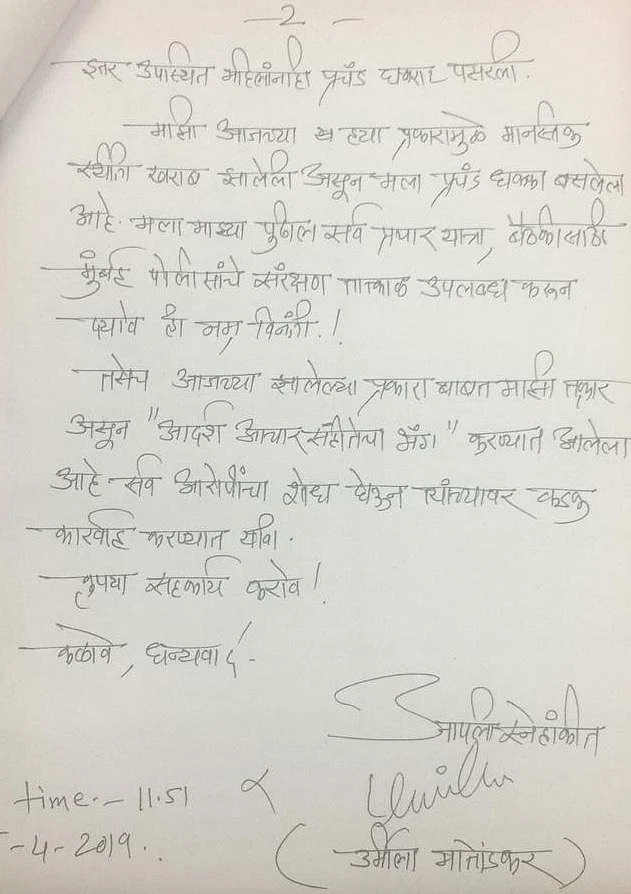 - 2 -
इतर उपस्थित महिलांनाही प्रचंड घबराट पसरली.
माझी आजच्या ह्या प्रकारामुळे मानसिक
स्थीती खराब झालेली असून मला प्रचंड धक्का बसलेला
आहे. मला माझ्या पुढील सर्व प्रचार यात्रा, बैठकीसाठी
मुंबई पोलीसांचे संरक्षण तात्काळ उपलब्ध करून
द्यावे ही नम्र विनंती.!
तसेच आजच्या झालेल्या प्रकारा बाबत माझी तक्रार
असून "आदर्श आचारसंहीतेचा भंग" करण्यात आलेला
आहे. सर्व आरोपींचा शोध घेऊन त्यांच्यावर कडक
कारवाई करण्यात यावी.
कृपया सहकार्य करावे!
कळावे, धन्यवाद!
आपली स्नेहांकीत
time.- 11.51
-4-2019.
(उर्मीला मातोंडकर)